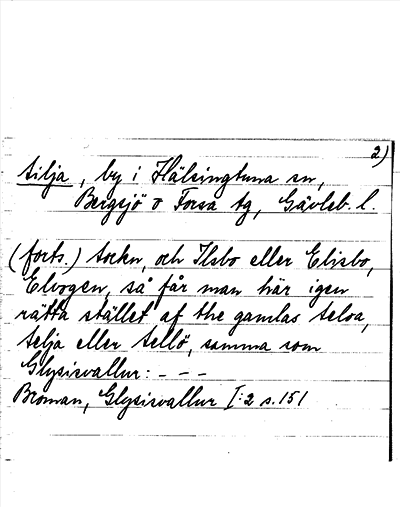 2)
tilja, by i Hälsingtuna sn,
Bergsjö o Forsa tg, Gävleb. l.
(forts.) sockn, och Ilsbo eller Elisbo,
Elvogen, så får man här igen
rätta stället af the gamlas telva,
telja eller tellö, samma som
Glysisvallur: - - -
Broman, Glysisvallur I:2 s. 151